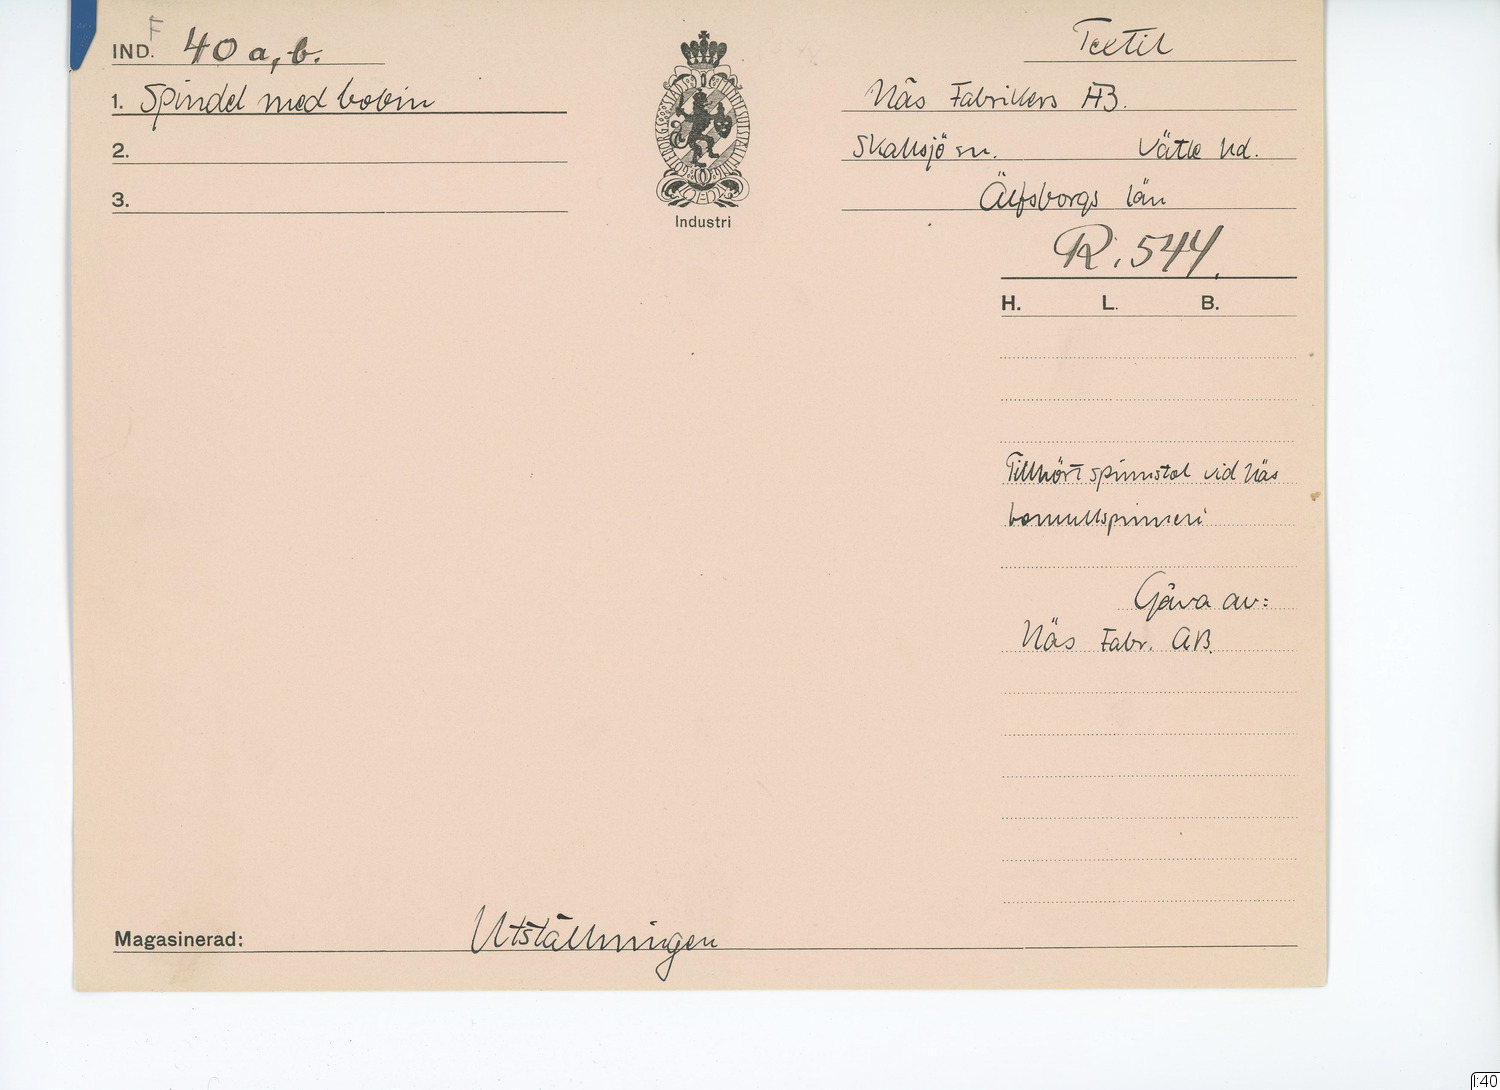 F
IND. 40 a, b.
Textil
1. Spindel med bobin
Näs Fabrikers AB.
2.
Skallsjö sn. Vätle hd.
3.
Älfsborgs län
GÖTEBORGS STADS MINNESUTSTÄLLNING
Industri
R. 544.
H. L. B.
Tillhört spinnstol vid Näs
bomullspinneri
Gåva av:
Näs Fabr. AB.
Magasinerad: Utställningen
1:40